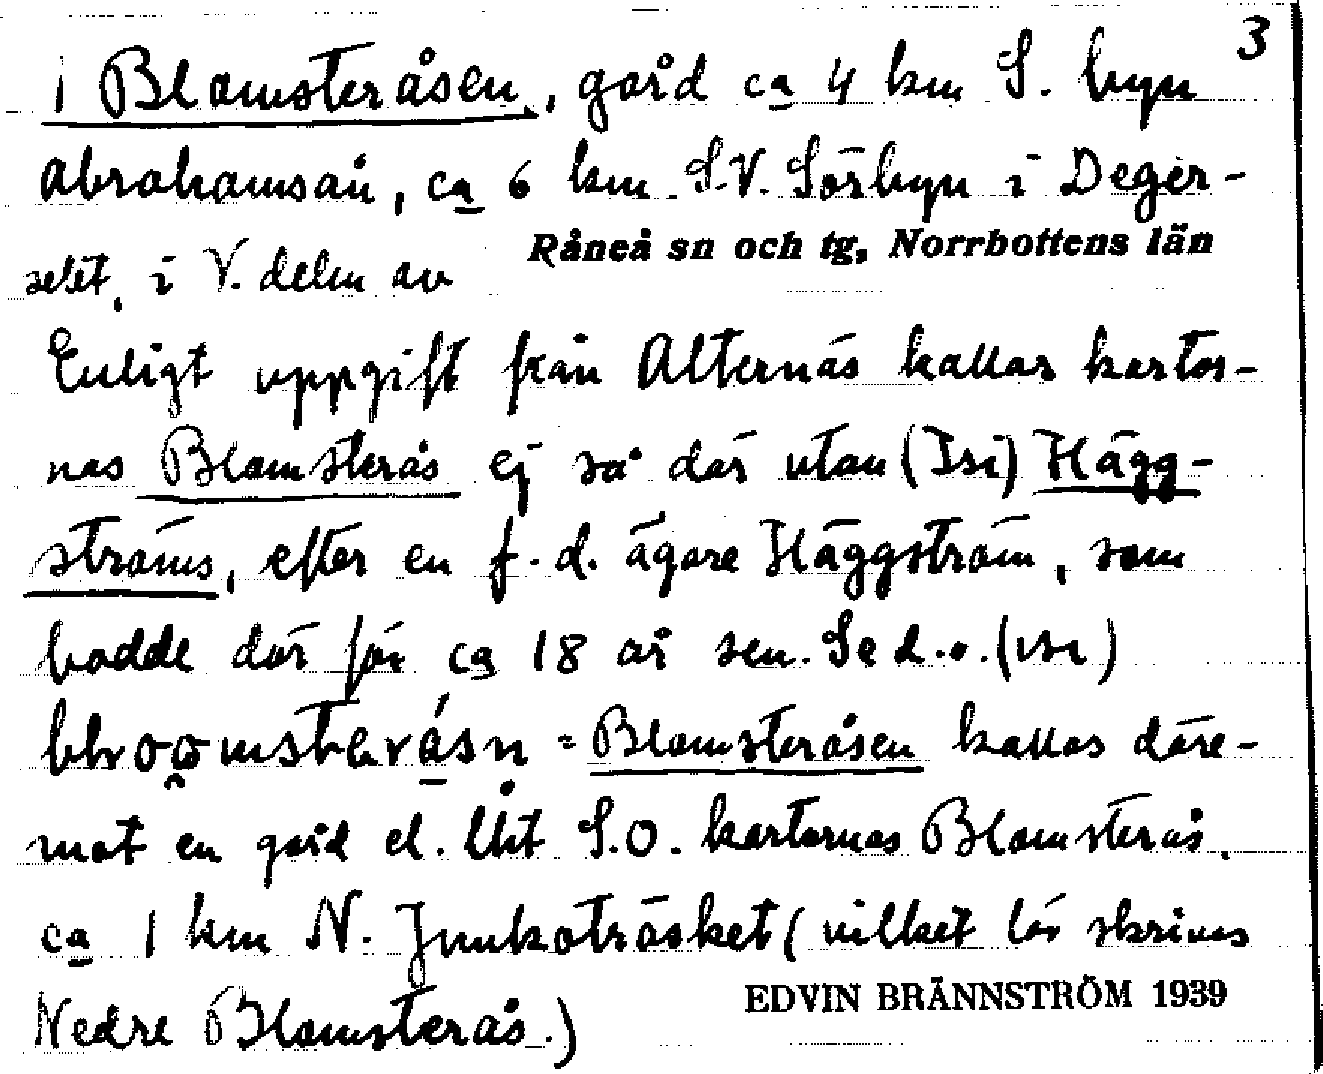 3
1 Blomsteråsen, gård ca 4 km S. byn
Abrahamsån, ca 6 km S.V. Sörbyn i Deger-
selet, i V. delen av Råneå sn och tg, Norrbottens län
Enligt uppgift från Alternäs kallas kartor-
nas Blomsterås ej så där utan (Isi) Hägg-
ströms, efter en f.d. ägare Häggström, som
bodde där för ca 18 år sen. Se d.o. (Isi)
= Blomsteråsen kallas däre-
mot en gård el. lht S.O. kartornas Blomsterås,
ca 1 km N. Junkoträsket (vilket lär skrivas
Nedre Blomsterås.)
EDVIN BRÄNNSTRÖM 1939